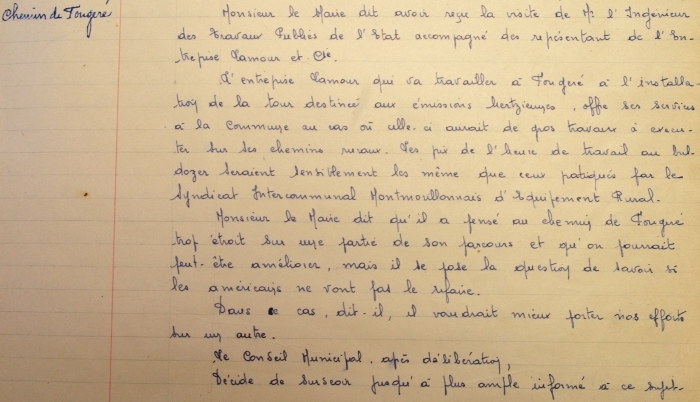 Chemin de Fougeré
Monsieur le Maire dit avoir reçu la visite de Mr l'Ingénieur
des Travaux Publics de l'Etat accompagné des représentant de l'En-
treprise Lamour et Cie.
L'entreprise Lamour qui va travailler à Fougeré à l'installa-
tion de la tour destinée aux émissions hertziennes, offre ses services
à la Commune au cas où celle-ci aurait de gros travaux à exécu-
ter sur ses chemins ruraux. Les prix de l'heure de travail au bul-
dozer seraient sensiblement les même que ceux pratiqués par le
Syndicat Intercommunal Montmoullonnais d'Equipement Rural.
Monsieur le Maire dit qu'il a pensé au chemin de Fougeré
trop étroit sur une partie de son parcours et qu'on pourrait
peut-être améliorer, mais il se pose la question de savoir si
les américains ne vont pas le refaire.
Dans ce cas, dit-il, il vaudrait mieux porter nos efforts
sur un autre.
Le Conseil Municipal, après délibération,
Décide de surseoir jusqu'à plus ample informé à ce sujet.